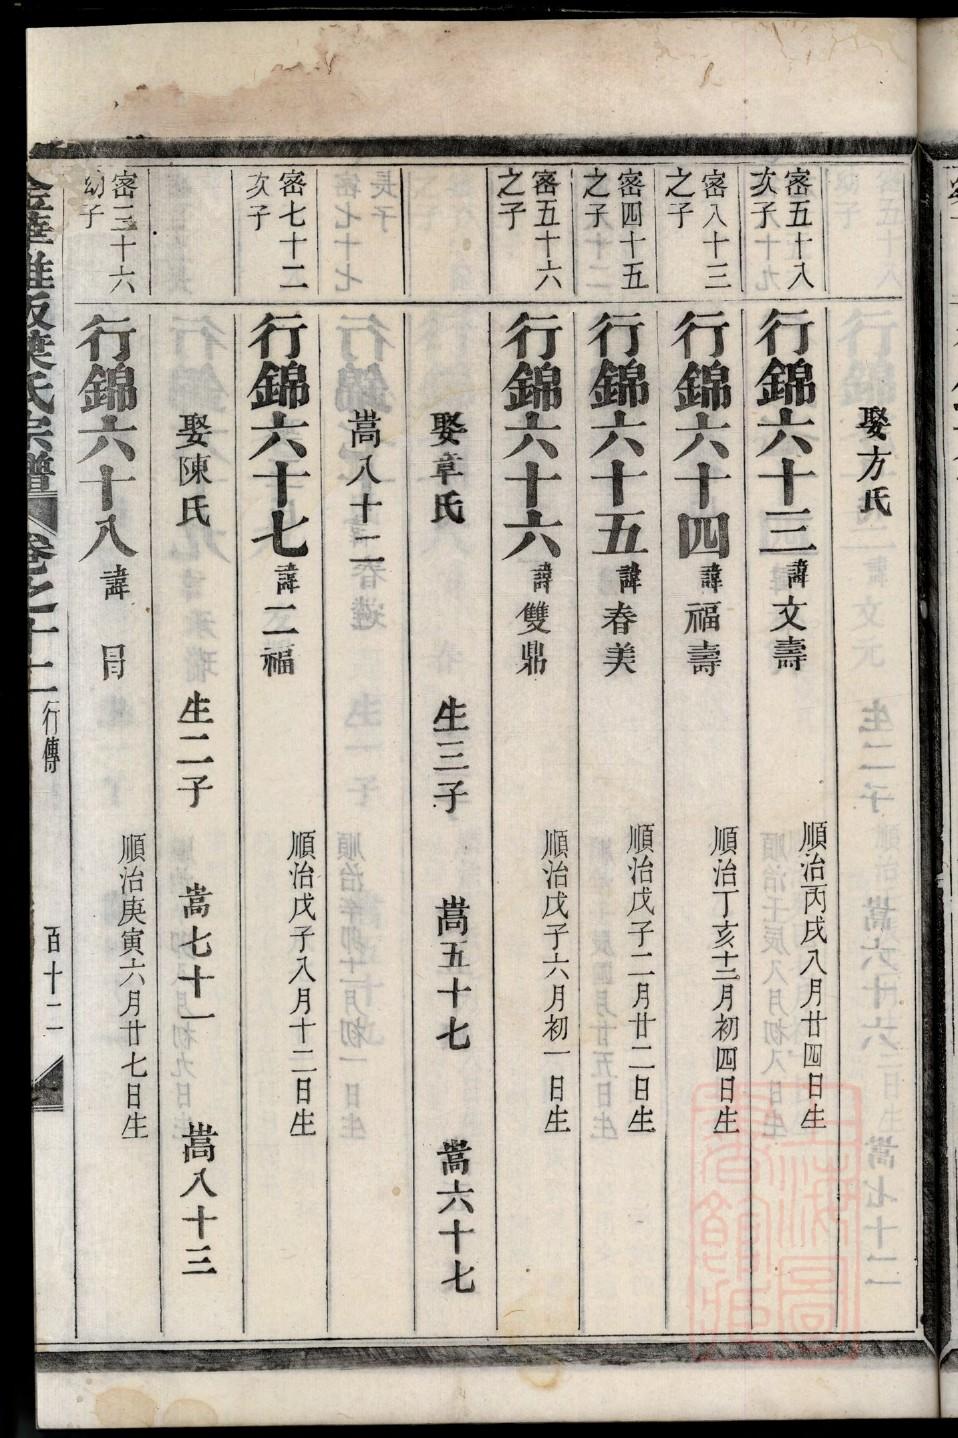 娶方氏
密五十八
次子
行錦六十三
諱文壽
順治丙戌八月廿四日生
密八十三
之子
行錦六十四
諱福壽
順治丁亥十二月初四日生
密四十五
之子
行錦六十五
諱春美
順治戊子二月廿二日生
密五十六
之子
行錦六十六
諱雙鼎
順治戊子六月初一日生
娶章氏 生三子 嵩五十七 嵩六十七
嵩八十二
密七十二
次子
行錦六十七
諱二福
順治戊子八月十二日生
娶陳氏 生二子 嵩七十一 嵩八十三
密三十六
幼子
行錦六十八
諱
順治庚寅六月廿七日生
葉氏宗譜 卷之十二 行傳 百十二